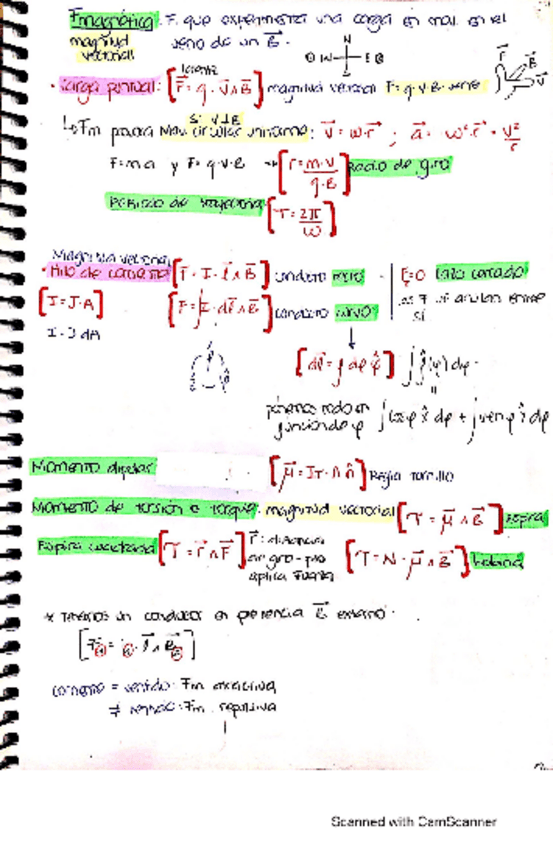 Fmagnética: F. que experimenta una carga en mov. en el
magnitud vectorial
seno de un B⃗.
N
O W E
S
Lorentz
• Carga puntual: [F⃗ = q · V⃗ ∧ B⃗] magnitud vectorial F = q·v·B·senα
Si V⊥B
↳ Fm para Mov. circular uniforme: v⃗ = w·r⃗ ; a⃗ = w²·r⃗ = v²/r
F = m·a y F = q·v·B → [r = m·v / q·B] Radio de giro
Periodo de trayectoria [T = 2π / w]
Magnitud vectorial
• Hilo de corriente [F⃗ = I · l⃗ ∧ B⃗] conductor recto
ξ=0 lazo cerrado
[I = J·A] [F = ∫ I · dl⃗ ∧ B⃗] conductor curvo
as F se anulan entre sí
I = J dA
[dl⃗ = ρ dφ φ̂] ∫ρ̂(φ) dφ =
ponemos todo en función de φ ∫cosφ x̂ dφ + ∫senφ ŷ dφ
Momento dipolar [μ⃗ = I · A n̂] Regla tornillo
Momento de torsión o torque: magnitud vectorial [τ = μ⃗ ∧ B⃗] espira
Espira cuadrada [τ = r⃗ ∧ F⃗] r⃗: distancia eje giro - pto aplica Fuerza [τ = N · μ⃗ ∧ B⃗] bobina
* Tenemos un conductor en presencia B⃗ externo.
corriente = sentido: Fm atractiva
≠ sentido: Fm repulsiva
Scanned with CamScanner